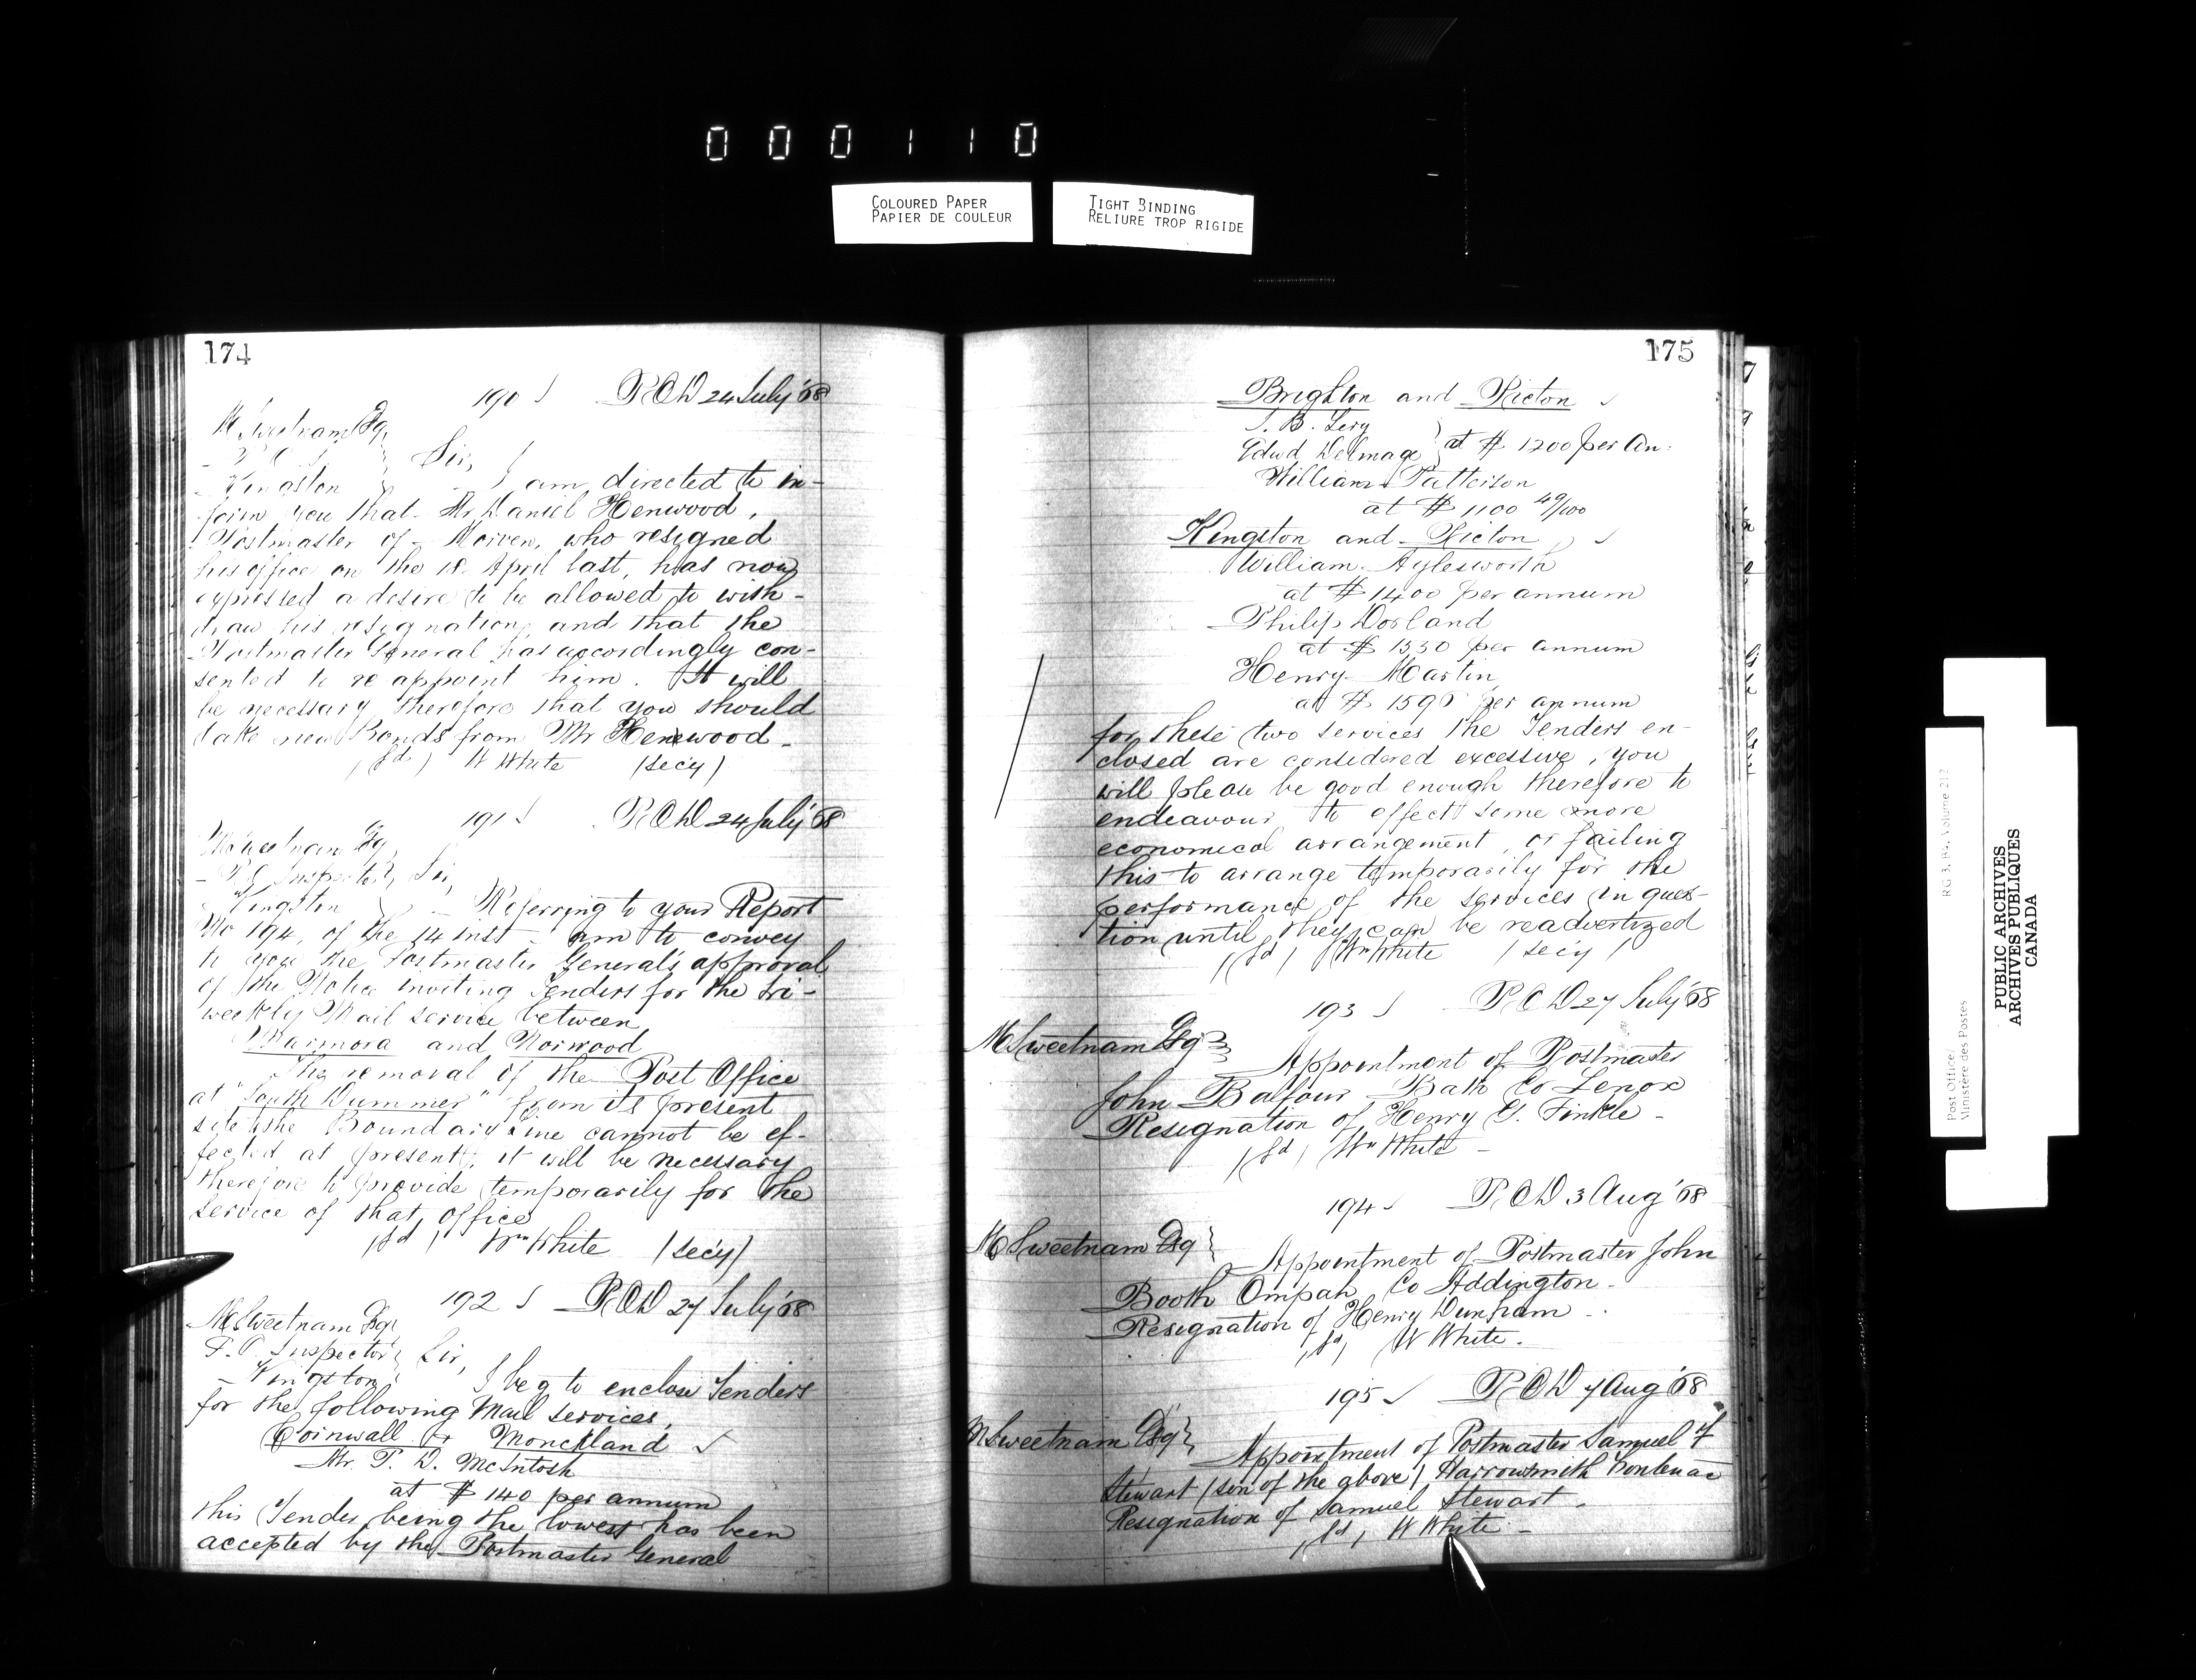 000110
COLOURED PAPER
PAPIER DE COULEUR
TIGHT BINDING
RELIURE TROP RIGIDE
174
190 P.O.D 24 July '68
M. Sweetnam Esq
Kingston
Sir,
I am directed to in-
form you that Mr Daniel Henwood,
Postmaster of Morven, who resigned
his office on the 18 April last, has now
expressed a desire to be allowed to with-
draw his resignation, and that the
Postmaster General has accordingly con-
sented to re appoint him. It will
be necessary therefore that you should
take new Bonds from Mr Henwood.
(sd) W White (secy)
191 P.O.D 24 July '68
M Sweetnam Esq
P.O Inspector, Sir,
Kingston
Referring to your Report
No 194, of the 14 inst am to convey
to you the Postmaster General's approval
of the Notice inviting Tenders for the tri-
weekly Mail service between
Marmora and Norwood
The removal of the Post Office
at "South Dummer" from its present
site the Boundary Line cannot be ef-
fected at present; it will be necessary
therefore to provide temporarily for the
service of that office
(sd) Wm White (secy)
192 P.O.D 27 July '68
M Sweetnam Esq
P.O. Inspector Sir,
Kingston
I beg to enclose Tenders
for the following Mail services,
Cornwall & Monckland
Mr. P. D. McIntosh
at $ 140 per annum
this Tender being the lowest has been
accepted by the Postmaster General
175
Brighton and Picton
Edwd Delmage at $ 1200 per An:
William Patterson
at $ 1100 49/100
Kingston and Picton
William Aylesworth
at $ 1400 per annum
Philip Dorland
at $ 1550 per annum
Henry Martin
at $ per annum
for these two services the Tenders en-
closed are considered excessive, you
will please be good enough therefore to
endeavour to effect some more
economical arrangement, or failing
this to arrange temporarily for the
performance of the services in ques-
tion until they can be readvertized
(sd) Wm White (secy)
193 P.O.D 27 July '68
M Sweetnam Esq
Appointment of Postmaster
John Balfour Bath Co Lenox
Resignation of Henry Finkle
(sd) Wm White
194 P.O.D 3 Aug '68
M Sweetnam Esq
Appointment of Postmaster John
Booth Ompah Co Addington
Resignation of Henry Dunham
(sd) W White.
195 P.O.D 7 Aug '68
M Sweetnam Esq
Appointment of Postmaster Samuel F
Stewart (son of the above) Harrowsmith Frontenac
Resignation of Samuel Stewart.
(sd) W White
Post Office/
Ministère des Postes
RG 3, B4, Volume 212
PUBLIC ARCHIVES
ARCHIVES PUBLIQUES
CANADA